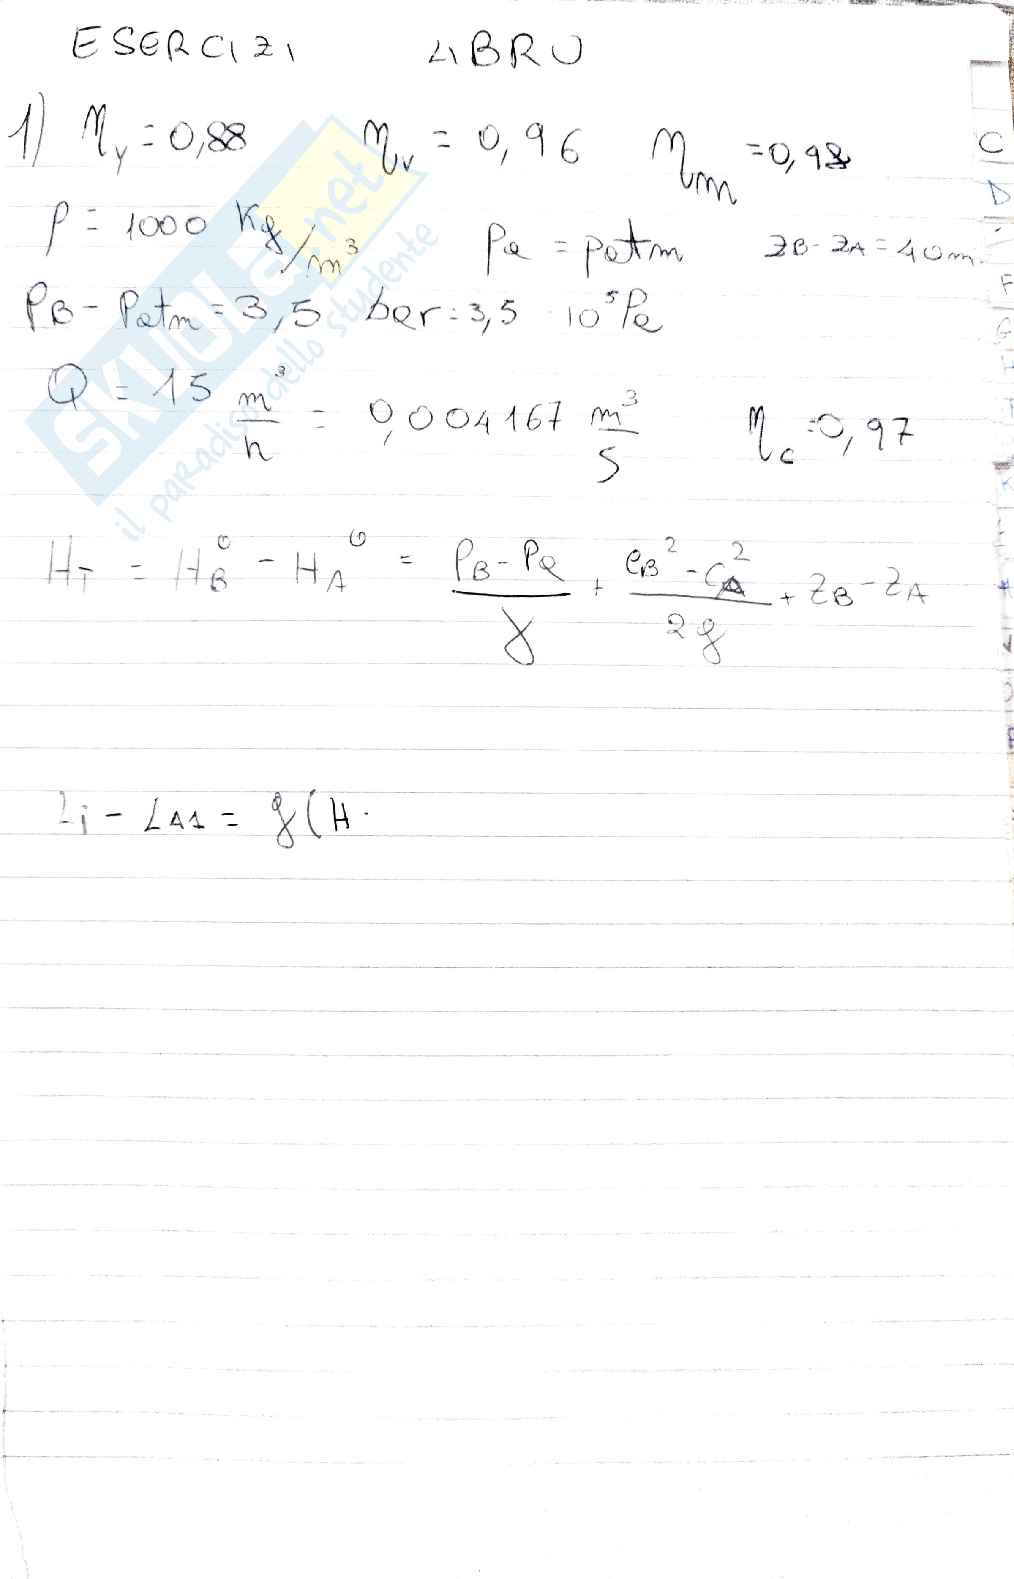 ESERCIZI LIBRO
1) ηy = 0,88 ηv = 0,96 ηm = 0,98
ρ = 1000 Kg/m³ pa = patm ZB - ZA = 40 m
PB - Patm = 3,5 bar = 3,5 10⁵ Pa
Q = 15 m³/h = 0,004167 m³/s ηc = 0,97
HT = HB⁰ - HA⁰ = (PB - Pa)/γ + (cB² - cA²)/2g + ZB - ZA
Li - LA1 = g(H.
SKUOLA.net
il paradiso dello studente
C
D
F
G